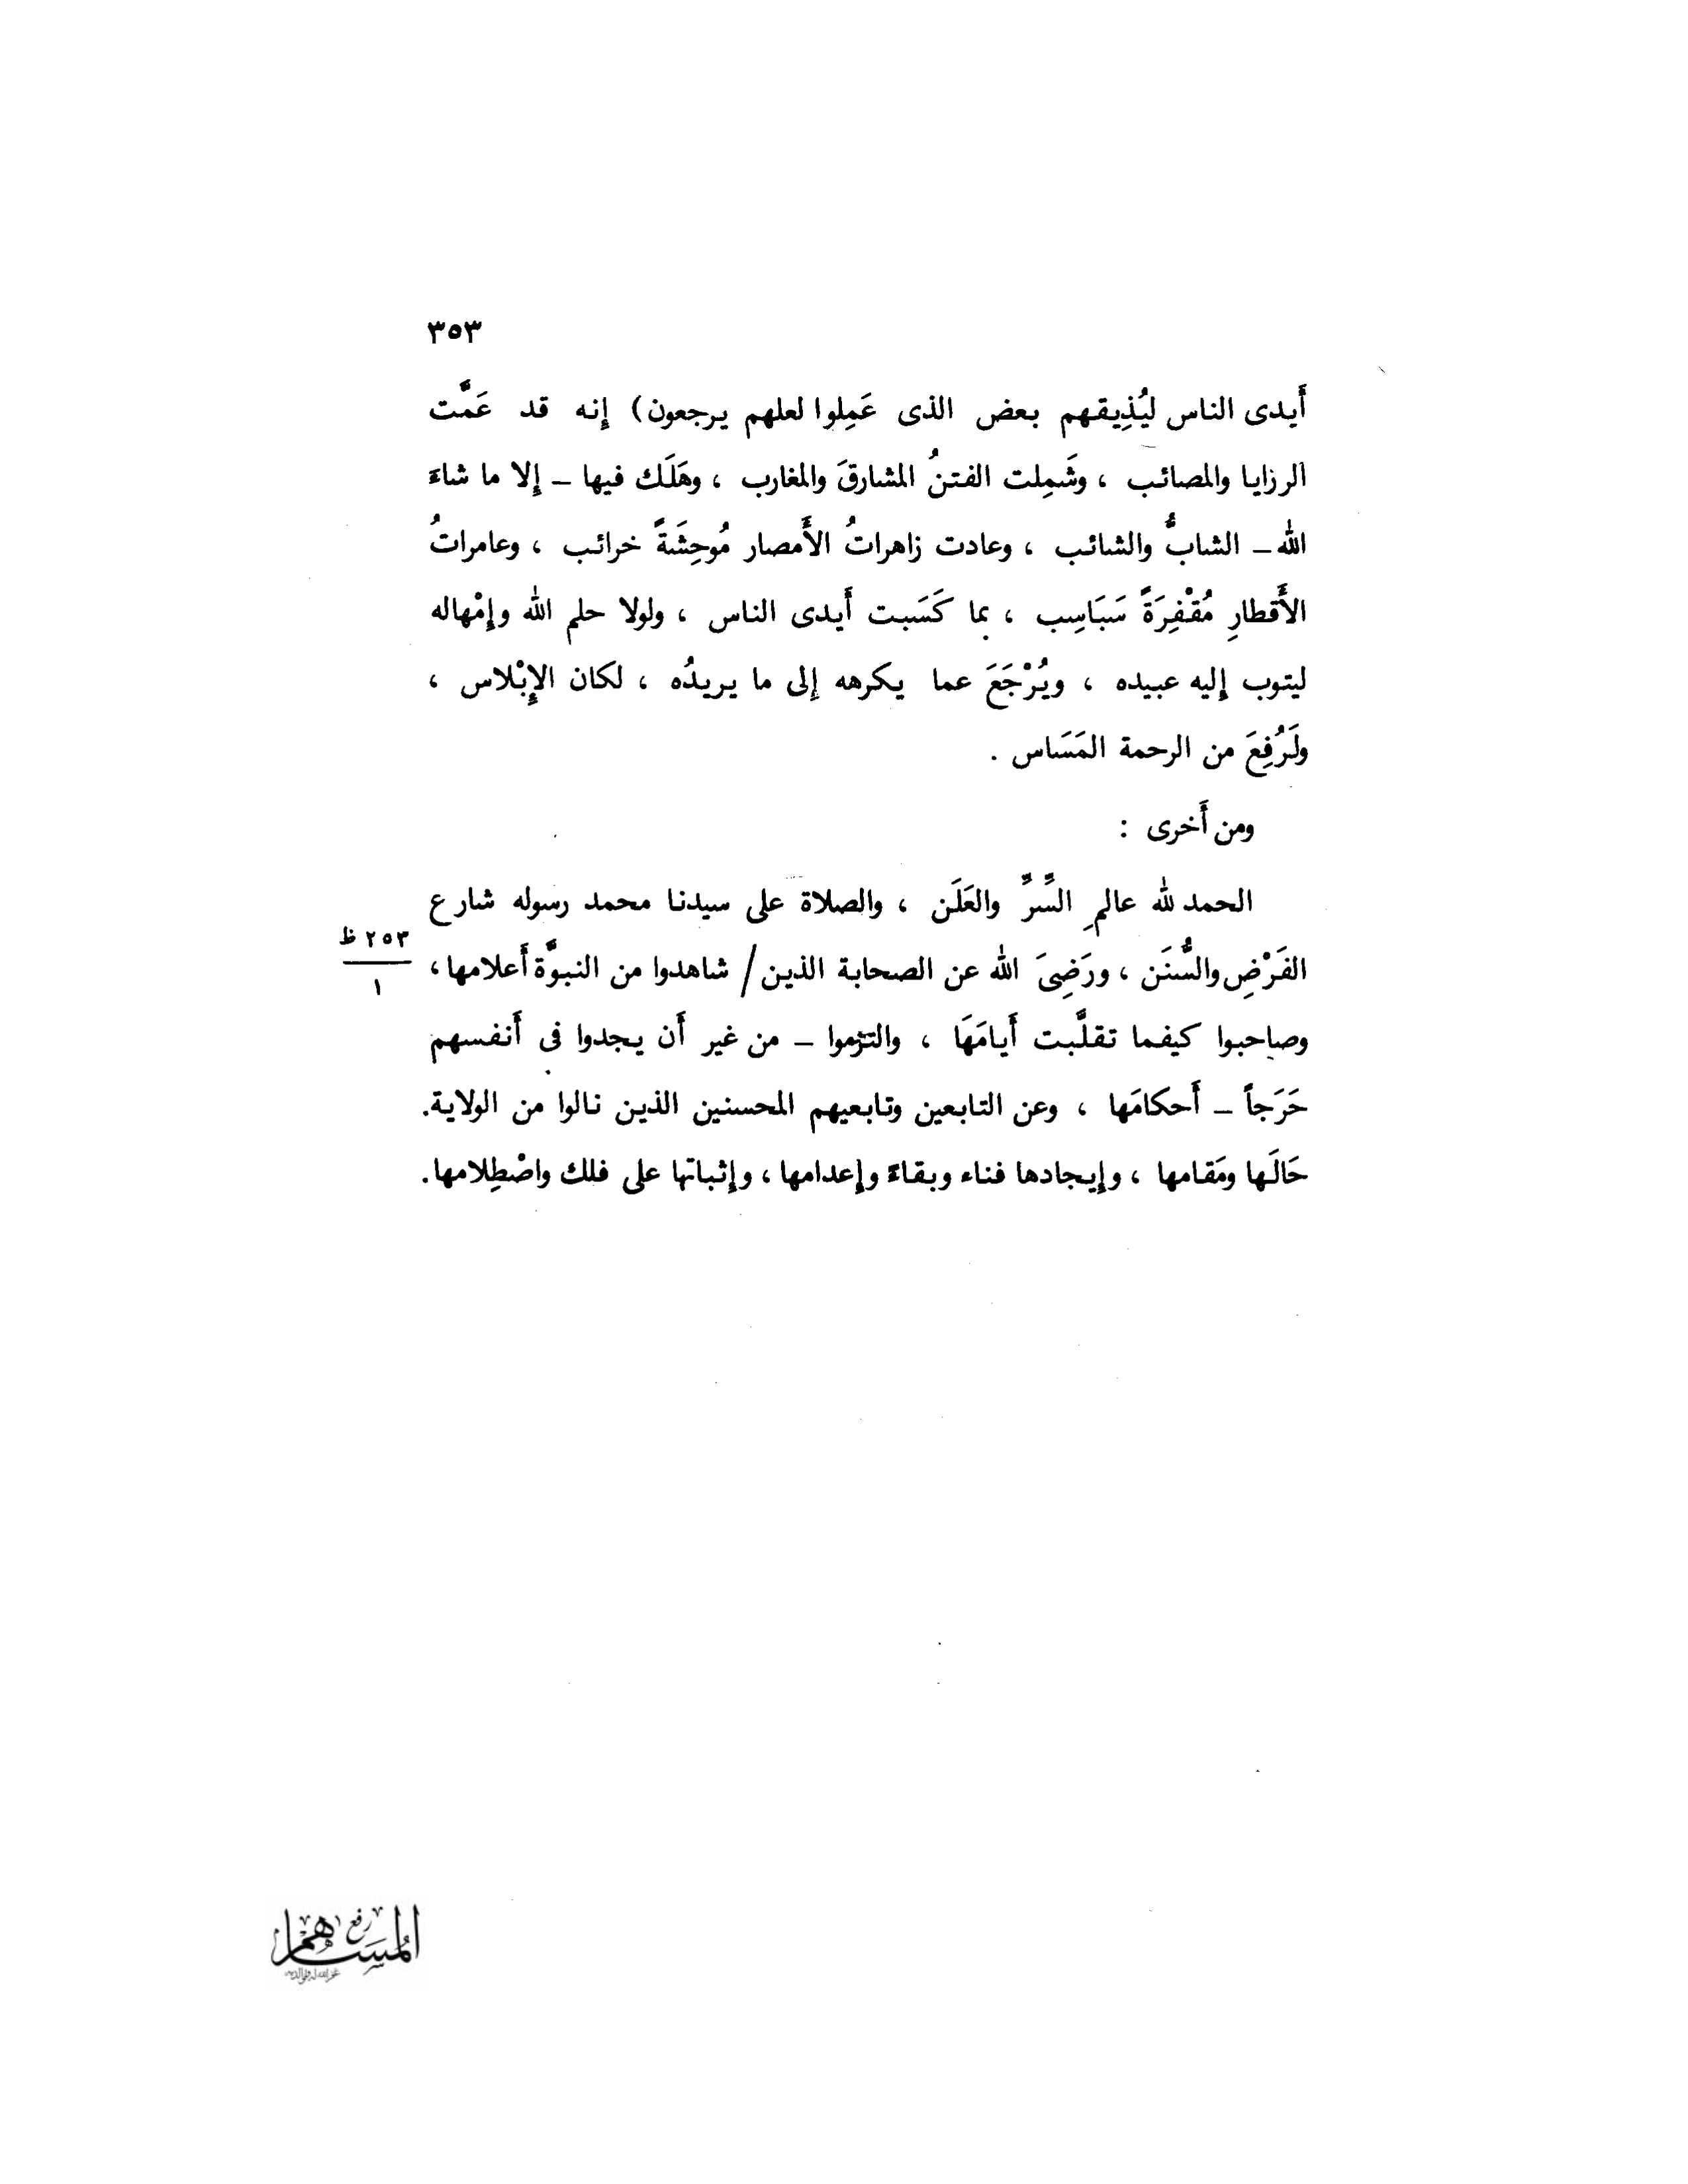 ٣٥٣
أَيدى الناس ليُذِيقهم بعض الذى عَمِلوا لعلهم يرجعون) إِنه قد عَمَّت
الرزايا والمصائب ، وشَمِلت الفتنُ المشارقَ والمغارب ، وهَلَك فيها – إِلا ما شاءَ
الله – الشابُّ والشائب ، وعادت زاهراتُ الأَمصار مُوحِشَةً خرائب ، وعامراتُ
الأَقطارِ مُقْفِرَةً سَبَاسِب ، بما كَسَبت أَيدى الناس ، ولولا حلم الله وإِمْهاله
ليتوب إِليه عبيده ، ويُرْجَعَ عما يكرهه إِلى ما يريدُه ، لكان الإِبْلاس ،
ولَرُفِعَ من الرحمة المَسَاس .
ومن أَخرى :
الحمد لله عالمِ السِّرِّ والعَلَن ، والصلاة على سيدنا محمد رسوله شارع
الفَرْضِ والسُّنَن ، ورَضِىَ الله عن الصحابة الذين / شاهدوا من النبوَّة أَعلامها ،
٢٥٣ ظ
١
وصاحبوا كيفما تقلَّبت أَيامَهَا ، والتزموا – من غير أَن يجدوا فى أَنفسهم
حَرَجاً – أَحكامَها ، وعن التابعين وتابعيهم المحسنين الذين نالوا من الولاية.
حَالَها ومَقامها ، وإِيجادها فناء وبقاءً وإِعدامها ، وإِثباتها على فلك واصْطِلامها.
رفع
المساهم
غفر الله له ولوالديه